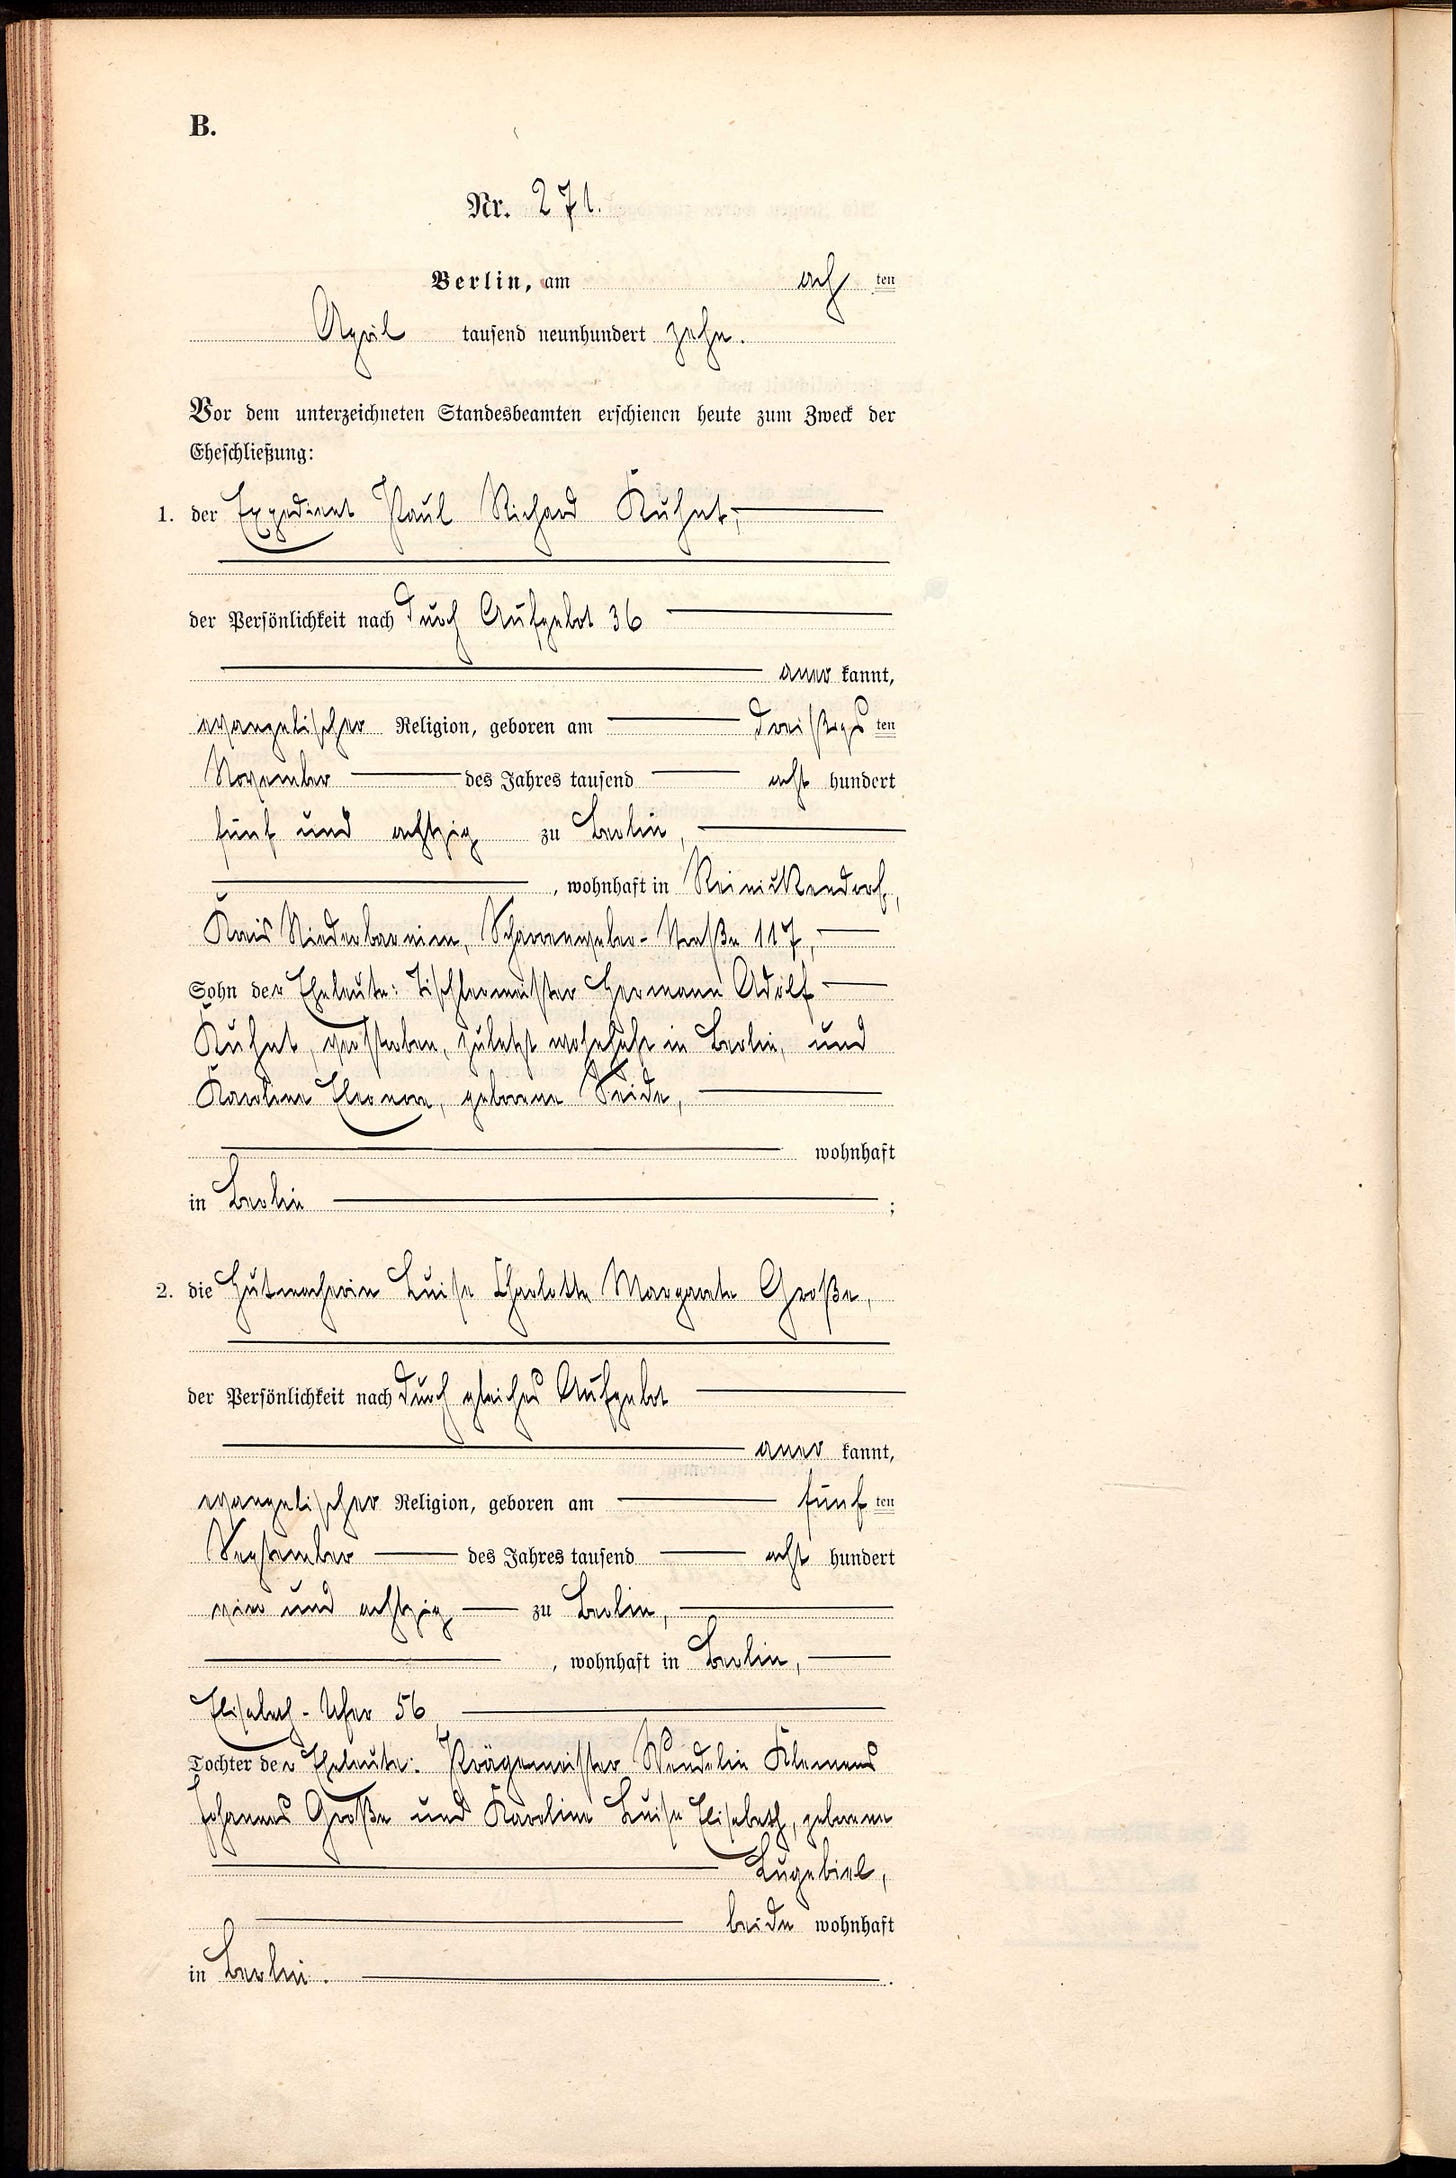 B.
Nr. 271.
Berlin, am ach ten
April tausend neunhundert zehn.
Vor dem unterzeichneten Standesbeamten erschienen heute zum Zweck der
Eheschließung:
1. der Expedient Paul Richard Kuhnt,
der Persönlichkeit nach durch Aufgebot 36
aner kannt,
evangelischer Religion, geboren am dreißigs ten
November des Jahres tausend acht hundert
fünf und achtzig zu Berlin,
, wohnhaft in Reinickendorf,
Kreis Niederbarnim, Scharnweber-Straße 117,
Sohn der Eheleute: Tischlermeister Hermann Adolf
Kuhnt, verstorben, zuletzt wohnhaft in Berlin, und
Karoline Eleonore, geborene Seide,
wohnhaft
in Berlin ;
2. die Hutmacherin Luise Charlotte Margarete Große,
der Persönlichkeit nach durch gleiches Aufgebot
aner kannt,
evangelischer Religion, geboren am fünf ten
September des Jahres tausend acht hundert
vier und achtzig zu Berlin,
, wohnhaft in Berlin,
Elisabeth-Ufer 56
Tochter der Eheleute: Prägemeister Wendelin Klemens
Johannes Große und Karoline Luise Elisabeth, geborene
Lugebiel,
beide wohnhaft
in Berlin.